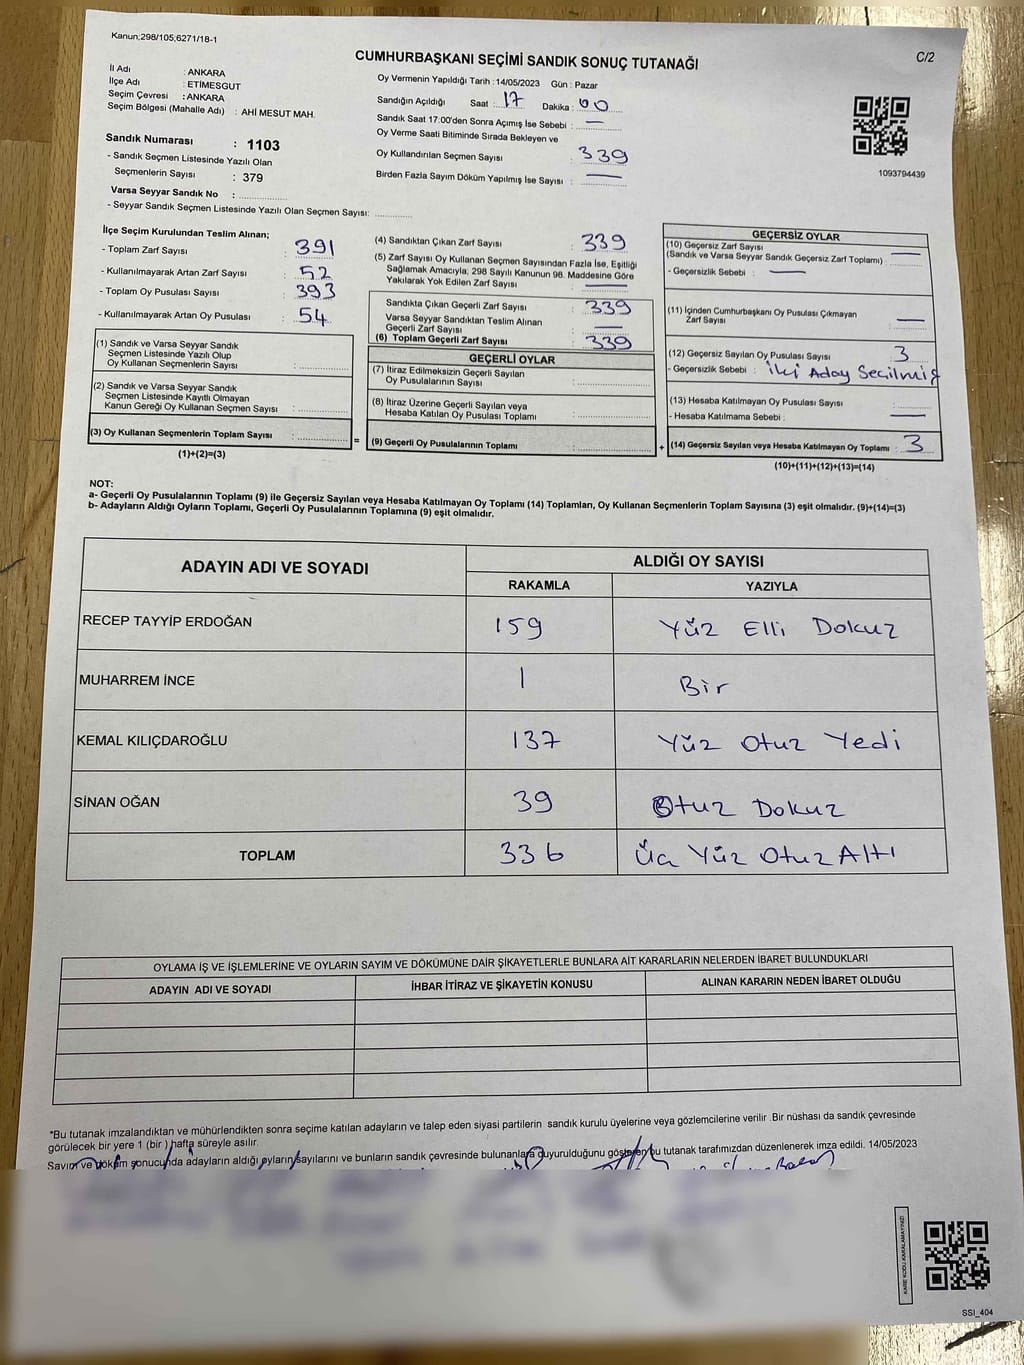 Kanun;298/105;6271/18-1
C/2
CUMHURBAŞKANI SEÇİMİ SANDIK SONUÇ TUTANAĞI
İl Adı : ANKARA
İlçe Adı : ETİMESGUT
Seçim Çevresi : ANKARA
Seçim Bölgesi (Mahalle Adı) : AHİ MESUT MAH.
Sandık Numarası : 1103
- Sandık Seçmen Listesinde Yazılı Olan
Seçmenlerin Sayısı : 379
Varsa Seyyar Sandık No :
- Seyyar Sandık Seçmen Listesinde Yazılı Olan Seçmen Sayısı:
Oy Vermenin Yapıldığı Tarih : 14/05/2023 Gün : Pazar
Sandığın Açıldığı Saat : 17 Dakika : 00
Sandık Saat 17:00'den Sonra Açımış İse Sebebi : —
Oy Verme Saati Bitiminde Sırada Bekleyen ve
Oy Kullandırılan Seçmen Sayısı : 339
Birden Fazla Sayım Döküm Yapılmış İse Sayısı : —
1093794439
İlçe Seçim Kurulundan Teslim Alınan;
- Toplam Zarf Sayısı : 391
- Kullanılmayarak Artan Zarf Sayısı : 52
- Toplam Oy Pusulası Sayısı : 393
- Kullanılmayarak Artan Oy Pusulası : 54
(1) Sandık ve Varsa Seyyar Sandık
Seçmen Listesinde Yazılı Olup
Oy Kullanan Seçmenlerin Sayısı :
(2) Sandık ve Varsa Seyyar Sandık
Seçmen Listesinde Kayıtlı Olmayan
Kanun Gereği Oy Kullanan Seçmen Sayısı :
(3) Oy Kullanan Seçmenlerin Toplam Sayısı :
(1)+(2)=(3)
=
(4) Sandıktan Çıkan Zarf Sayısı : 339
(5) Zarf Sayısı Oy Kullanan Seçmen Sayısından Fazla İse, Eşitliği
Sağlamak Amacıyla; 298 Sayılı Kanunun 98. Maddesine Göre
Yakılarak Yok Edilen Zarf Sayısı : —
Sandıkta Çıkan Geçerli Zarf Sayısı : 339
Varsa Seyyar Sandıktan Teslim Alınan
Geçerli Zarf Sayısı : —
(6) Toplam Geçerli Zarf Sayısı : 339
GEÇERLİ OYLAR
(7) İtiraz Edilmeksizin Geçerli Sayılan
Oy Pusulalarının Sayısı :
(8) İtiraz Üzerine Geçerli Sayılan veya
Hesaba Katılan Oy Pusulası Toplamı :
(9) Geçerli Oy Pusulalarının Toplamı :
+
GEÇERSİZ OYLAR
(10) Geçersiz Zarf Sayısı
(Sandık ve Varsa Seyyar Sandık Geçersiz Zarf Toplamı) : —
- Geçersizlik Sebebi : —
(11) İçinden Cumhurbaşkanı Oy Pusulası Çıkmayan
Zarf Sayısı : —
(12) Geçersiz Sayılan Oy Pusulası Sayısı : 3
- Geçersizlik Sebebi : İki Aday Seçilmiş
(13) Hesaba Katılmayan Oy Pusulası Sayısı :
- Hesaba Katılmama Sebebi : —
(14) Geçersiz Sayılan veya Hesaba Katılmayan Oy Toplamı : 3
(10)+(11)+(12)+(13)=(14)
NOT:
a- Geçerli Oy Pusulalarının Toplamı (9) ile Geçersiz Sayılan veya Hesaba Katılmayan Oy Toplamı (14) Toplamları, Oy Kullanan Seçmenlerin Toplam Sayısına (3) eşit olmalıdır. (9)+(14)=(3)
b- Adayların Aldığı Oyların Toplamı, Geçerli Oy Pusulalarının Toplamına (9) eşit olmalıdır.
ADAYIN ADI VE SOYADI ALDIĞI OY SAYISI
RAKAMLA YAZIYLA
RECEP TAYYİP ERDOĞAN 159 Yüz Elli Dokuz
MUHARREM İNCE 1 Bir
KEMAL KILIÇDAROĞLU 137 Yüz Otuz Yedi
SİNAN OĞAN 39 Otuz Dokuz
TOPLAM 336 Üç Yüz Otuz Altı
OYLAMA İŞ VE İŞLEMLERİNE VE OYLARIN SAYIM VE DÖKÜMÜNE DAİR ŞİKAYETLERLE BUNLARA AİT KARARLARIN NELERDEN İBARET BULUNDUKLARI
ADAYIN ADI VE SOYADI İHBAR İTİRAZ VE ŞİKAYETİN KONUSU ALINAN KARARIN NEDEN İBARET OLDUĞU
*Bu tutanak imzalandıktan ve mühürlendikten sonra seçime katılan adayların ve talep eden siyasi partilerin sandık kurulu üyelerine veya gözlemcilerine verilir .Bir nüshası da sandık çevresinde
görülecek bir yere 1 (bir ) hafta süreyle asılır.
Sayım ve döküm sonucunda adayların aldığı oyların sayılarını ve bunların sandık çevresinde bulunanlara duyurulduğunu gösteren bu tutanak tarafımızdan düzenlenerek imza edildi. 14/05/2023
KARE KODU KARALAMAYINIZ!
SSI_404